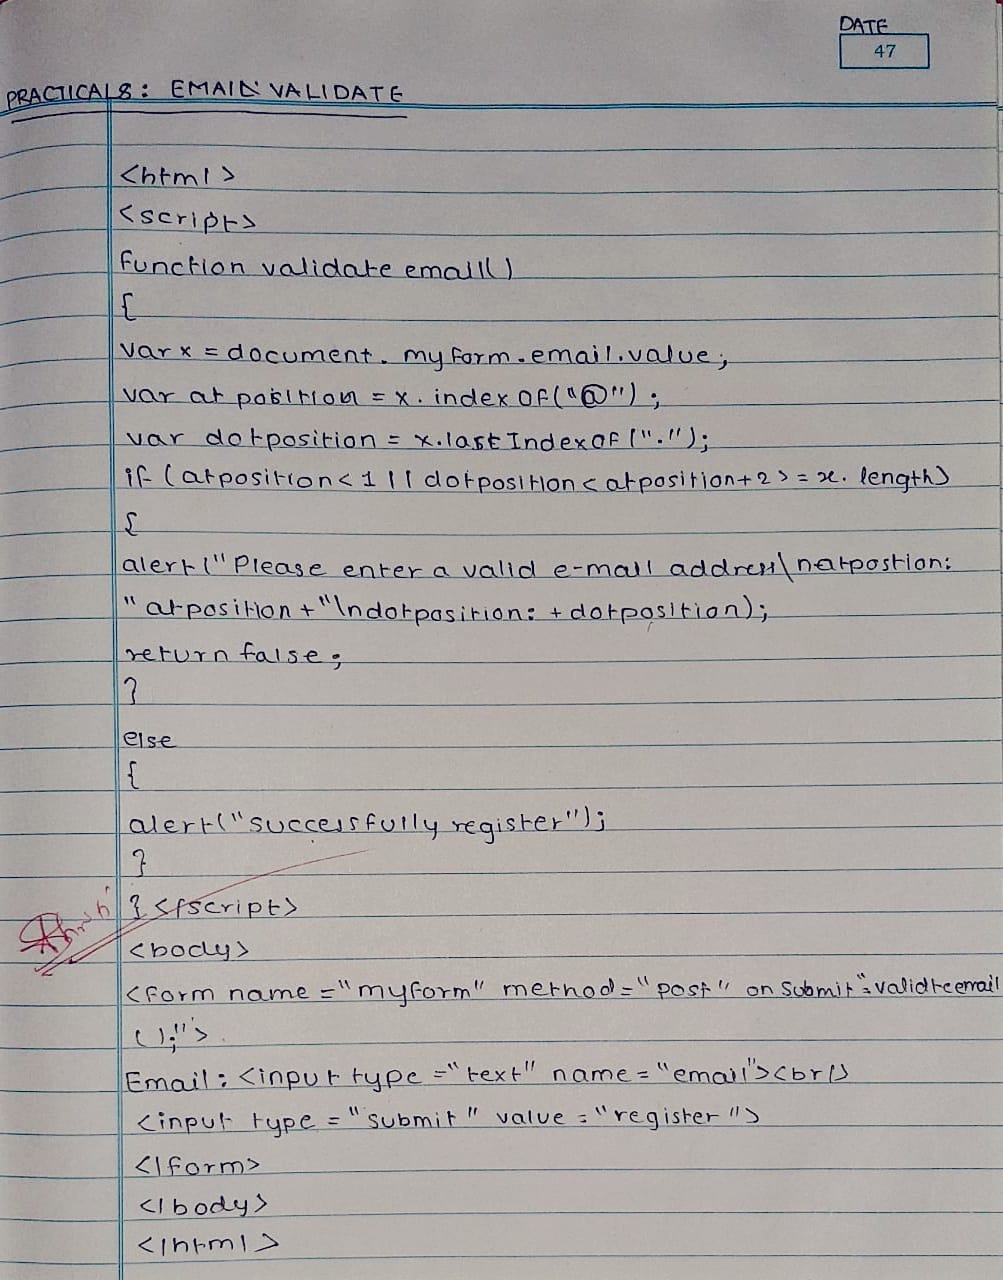 DATE
47
PRACTICAL8: EMAIL VALIDATE
<html>
<script>
function validate email()
{
var x = document. myform.email.value;
var at position = x. index of("@");
var dotposition = x.last Index of (".");
if (atposition < 1 || dotposition < atposition+2 > = x. length)
{
alert ("Please enter a valid e-mail address\natpostion:
" atposition + "\ndotposition: + dotposition);
return false;
}
else
{
alert("successfully register");
}
} </script>
<body>
<form name ="myform" method="post" on submit"=validteemail
();">
Email: <input type ="text" name = "email"><br/>
<input type = "submit" value = "register">
</form>
</body>
</html>